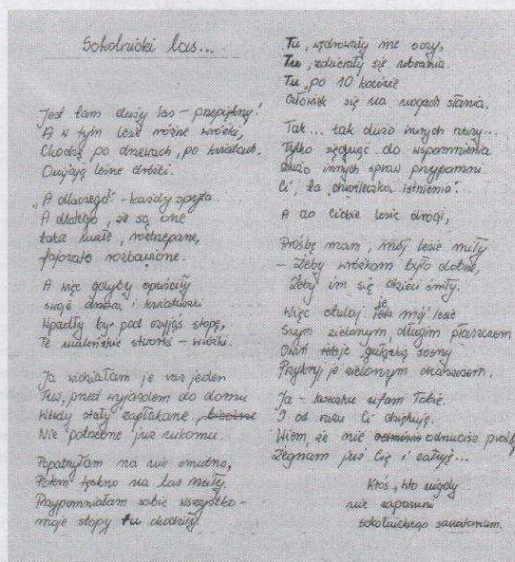 Sokolnicki las...
Jest tam duży las – przepiękny!
A w tym lesie różne wróżki,
Chodzą po drzewach, po kwiatach.
leśne dróżki.
„A dlaczego?" – każdy spyta.
A dlatego, że są one
takie małe, roztrzepane,
rozbawione.
A więc gdyby opuściły
swoje drzewa i kwiatuszki
Wpadłyby pod czyjąś stopę,
Te maleńkie stworki – wróżki.
Ja widziałam je raz jeden
Tuż przed wyjazdem do domu
Wtedy stały zapłakane,
Nie potrzebne już nikomu.
Popatrzyłam na nie smutno,
Potem na las miły.
Przypomniałam sobie wszystko –
moje stopy tu chodziły.
Tu, wędrowały me oczy,
Tu, zdzierały się ubrania.
Tu, po 10 kocówie
Człowiek się na nogach słania.
Tak... tak dużo innych rzeczy...
Tylko sięgnąć do wspomnienia
Dużo innych spraw przypomni
Ci, ta „chwileczka istnienia".
A do Ciebie lesie drogi,
Prośbę mam, mój lesie miły
– Żeby wróżkom było dobrze,
Żeby im się dzieci śniły.
Więc otulaj je mój lesie
Swym zielonym długim płaszczem
Okryj gałązką sosny
Przykryj je zielonym chaszczem.
Ja – lasu ufam Tobie.
I od razu Ci dziękuję.
Wiem, że nie odrzucisz prośby
Żegnam już Cię i całuję...
Ktoś, kto nigdy
nie zapomni
sokolnickiego sanatorium.